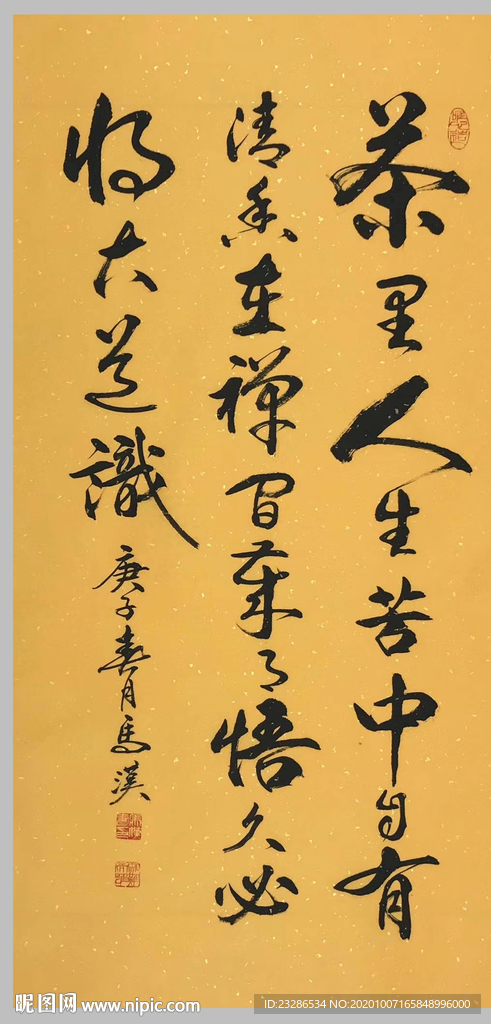 茶里人生苦中自有
清香在禅間悟久必
將大道識
庚子春月馬漢
昵图网 www.nipic.com
ID:23286534 NO:20201007165848996000